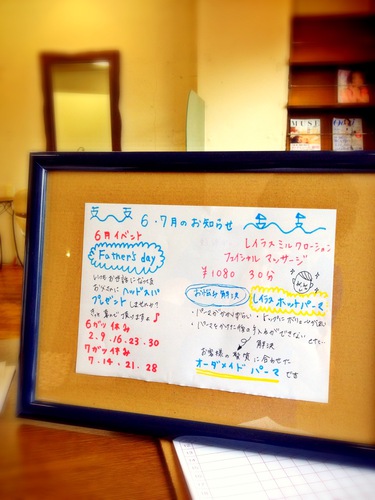 6・7月のお知らせ
6月イベント
Father's day
いつもお世話になってる
お父さんに ヘッドスパ
プレゼント しませんか?
きっと喜んで頂けますよ♪
6ガツ休み
2.9.16.23.30
7ガツ休み
7.14.21.28
レイラスミルクローション
フェイシャル マッサージ
¥1080 30分
お悩み解決
レイラス ホットパーマ
・パーマがかからない
・トップにボリュームが
・パーマをかけた後の手入れができない
解決
お客様の髪質に合わせた
オーダメイド パーマ です
MUSE